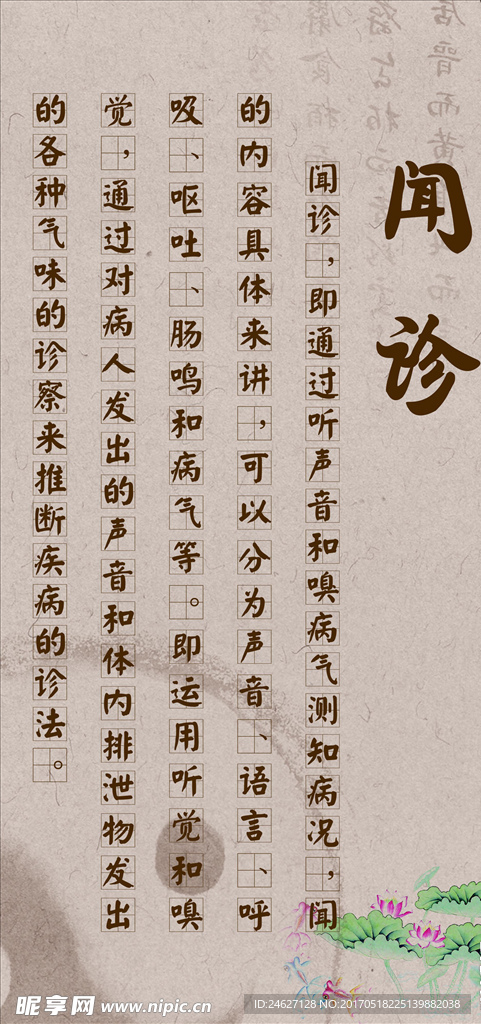 闻诊
闻诊，即通过听声音和嗅病气测知病况，闻
的内容具体来讲，可以分为声音、语言、呼
吸、呕吐、肠鸣和病气等。即运用听觉和嗅
觉，通过对病人发出的声音和体内排泄物发出
的各种气味的诊察来推断疾病的诊法。
昵享网 www.nipic.cn
ID:24627128 NO:20170518225139882038